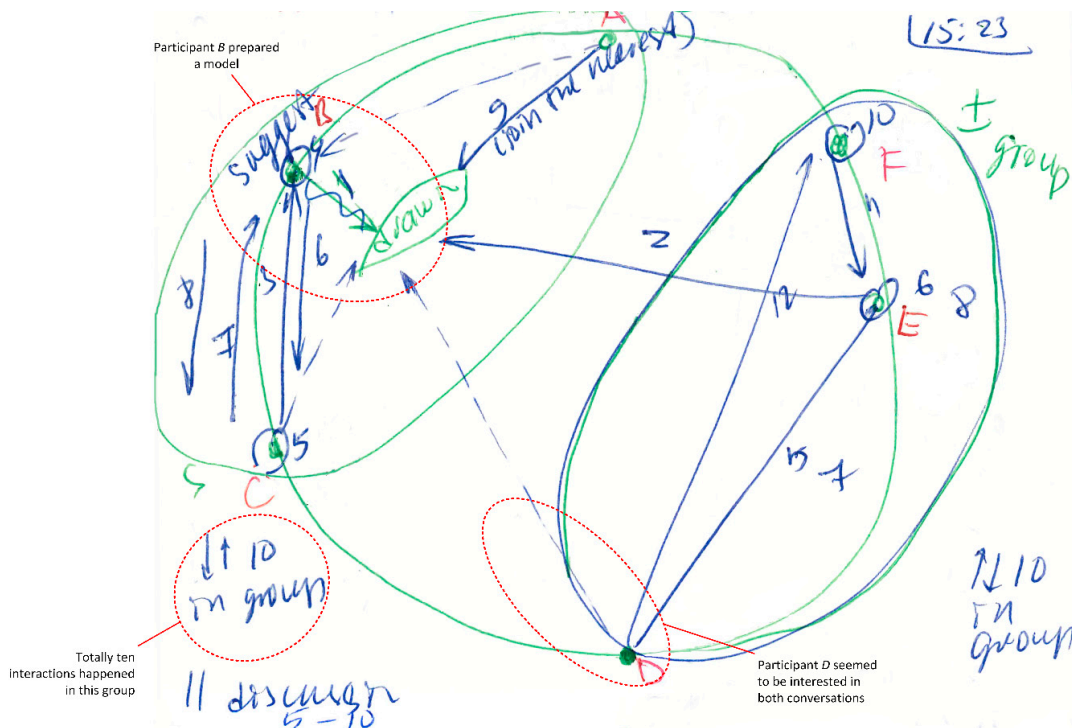 A
15:23
Participant B prepared
a model
suggest B
9
(join out interest)
10
F
±
group
1
draw
6
3
2
11
8
7
12
6
E
8
5
C
5
13 7
↓↑ 10
in group
↑↓ 10
in
group
D
Totally ten
interactions happened
in this group
Participant D seemed
to be interested in
both conversations
|| discussion
5-10